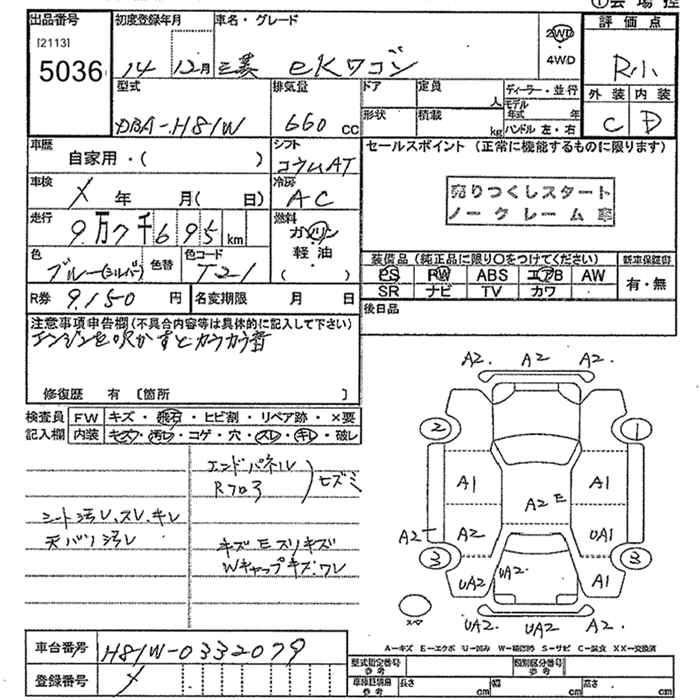 ①会場控
出品番号
[2113]
5036
初度登録年月
14 12月
車名・グレード
三菱 eKワゴン
2WD
・
4WD
評価点
R小
外装 内装
C D
型式
DBA-H81W
排気量
660 cc
ドア
定員
人
形状
積載
kg
ディーラー・並行
モデル年式 年
ハンドル 左・右
車歴
自家用・( )
シフト
コラムAT
車検
× 年 月( 日)
冷房
AC
走行
9万7千695 km
燃料
ガソリン
軽油
( )
色
ブルー(シルバ)
色替
色コード
T21
R券 9,150 円
名変期限 月 日
セールスポイント (正常に機能するものに限ります)
売りつくしスタート
ノークレーム車
装備品 (純正品に限り○をつけてください)
新車保証書
PS PW ABS エアB AW
SR ナビ TV カワ
有・無
後日品
注意事項申告欄(不具合内容等は具体的に記入して下さい)
エンジンを吹かすとカラカラ音
修復歴 有 〔箇所 〕
検査員記入欄
FW キズ・飛石・ヒビ割・リペア跡・×要
内装 キズ・汚レ・コゲ・穴・スレ・キレ・破レ
エンドパネル
Rフロア
ヒズミ
シート汚レ、スレ、キレ
天バリ汚レ
キズ E スリキズ
Wキャップキズ・ワレ
A2. A2 A2.
2 1
A1 A2 E A1
A2 A2 UA1
3 3
UA2 UA2 A1
スペ
UA2 UA2 A2.
A－キズ E－エクボ U－凹み W－補修跡 S－サビ C－腐食 XX－交換済
車台番号 H81W-0332079
登録番号 ×
型式指定番号
参考
類別区分番号
参考
車検証数値
参考
長さ cm 幅 cm 高さ cm